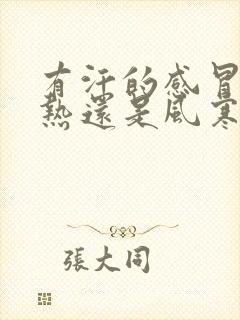 有汗的感冒
熱還是風寒
張大同